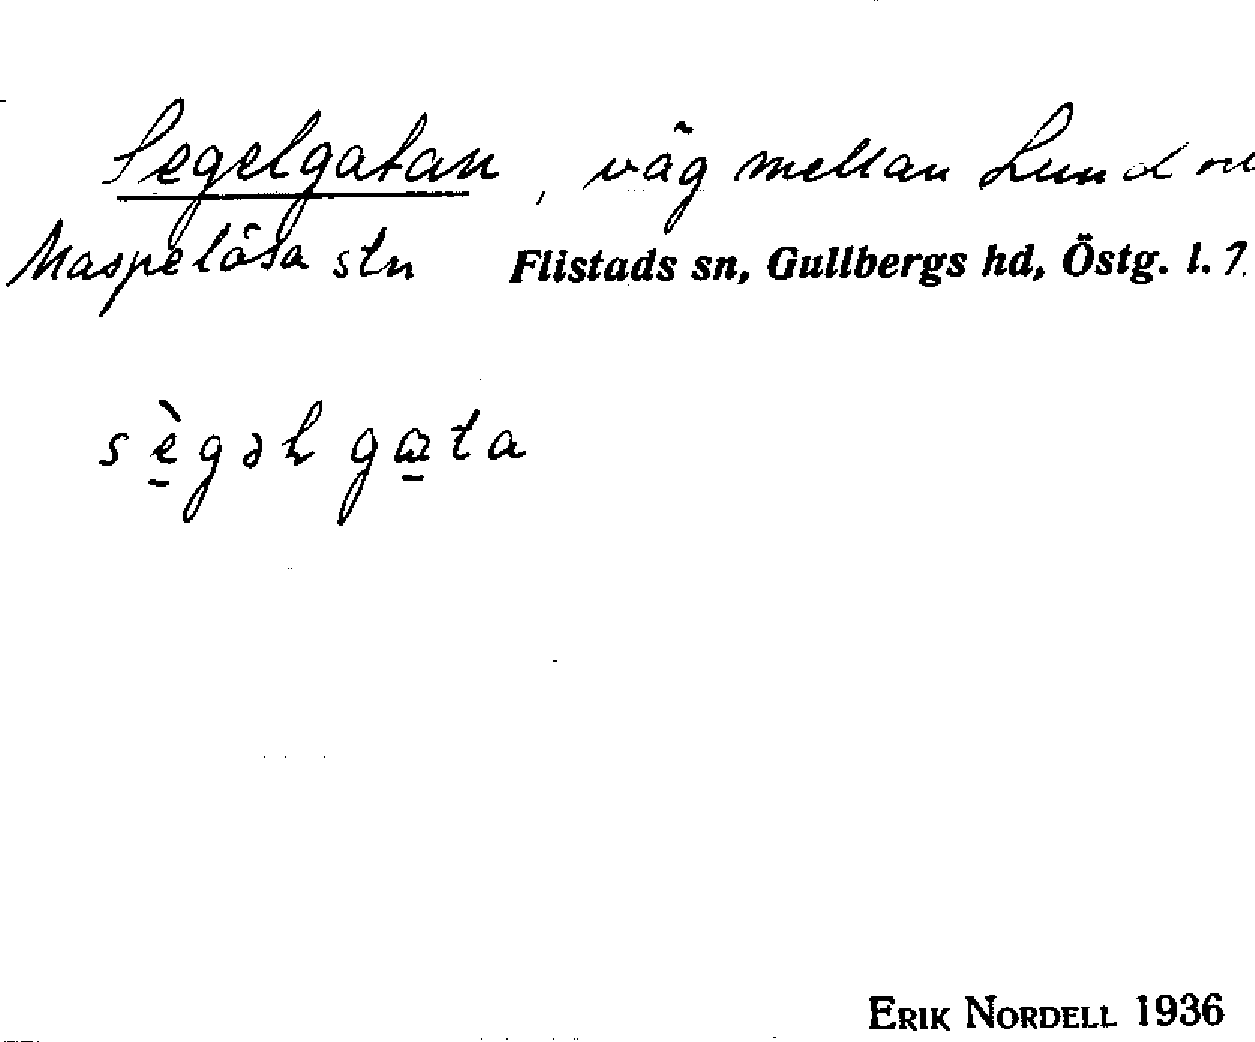 Segelgatan, väg mellan Lund o
Maspelösa stn Flistads sn, Gullbergs hd, Östg. l. 7.
sègəl gata
ERIK NORDELL 1936